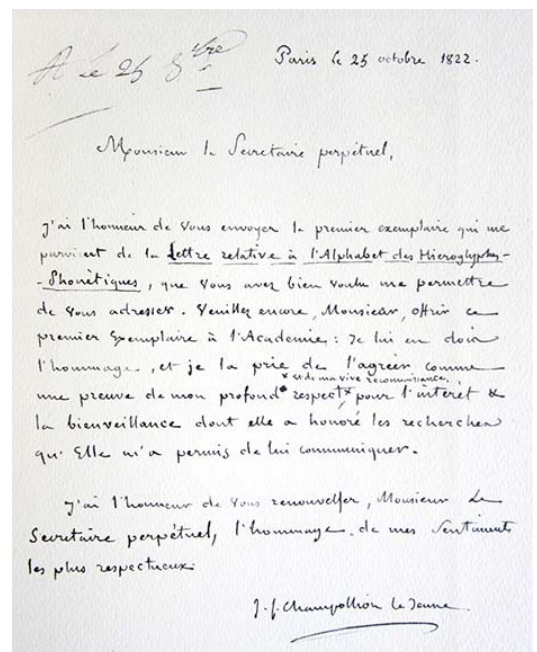 R le 25 8bre
Paris le 25 octobre 1822.
Monsieur le Secretaire perpétuel,
j'ai l'honneur de vous envoyer le premier exemplaire qui me
parvient de la Lettre relative à l'Alphabet des Hieroglyphes-
-Phonétiques, que vous avez bien voulu me permettre
de vous adresser. Veuillez encore, Monsieur, offrir ce
premier Exemplaire à l'Academie : Je lui en dois
l'hommage, et je la prie de l'agréer comme
× et de ma vive reconnaissance,
une preuve de mon profond respect × pour l'intérêt &
la bienveillance dont elle a honoré les recherches
qu'Elle m'a permis de lui communiquer.
J'ai l'honneur de vous renouveller, Monsieur Le
Secretaire perpétuel, l'hommage de mes Sentiments
les plus respectueux.
J. f. Champollion le Jeune